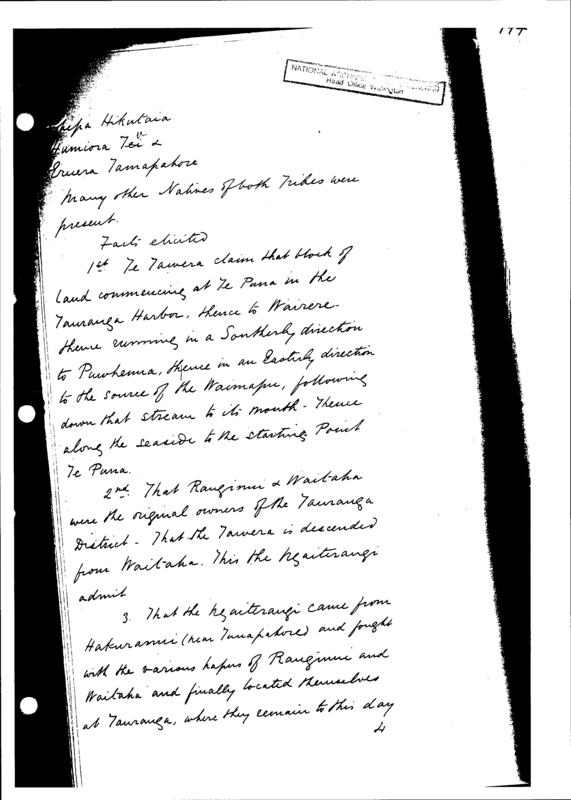 174
NATIONAL ARCHIVES
Head Office Wellington
Hikutaia
Humiora Tu &
Eruera Tamapahore
Many other Natives of both Tribes were
present.
Facts elicited
1st Te Tawera claim that block of
land commencing at Te Puna in the
Tauranga Harbor, thence to Wairere
thence running in a Southerly direction
to Puwhenua, thence in an Easterly direction
to the source of the Waimapu, following
down that stream to its mouth - Thence
along the seaside to the starting Point
Te Puna.
2nd. That Ranginui & Waitaha
were the original owners of the Tauranga
District - That the Tawera is descended
from Waitaha. This the Ngaiterangi
admit
3. That the Ngaiterangi came from
(near Tamapahore) and fought
with the various hapus of Ranginui and
Waitaha and finally located themselves
at Tauranga, where they remain to this day
4